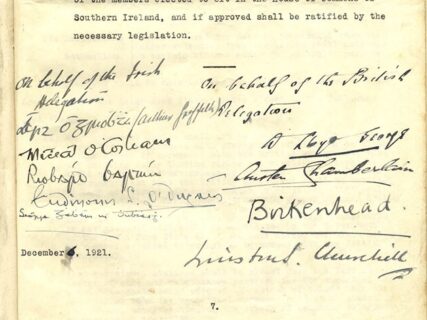 of the members elected to sit in the House of Commons of
Southern Ireland, and if approved shall be ratified by the
necessary legislation.
On behalf of the Irish
Delegation
(Arthur Griffith)
Micheál O Coileain
Riobárd Bartún
On behalf of the British
Delegation
D Lloyd George
Austen Chamberlain
Birkenhead.
Winston S. Churchill
December 6, 1921.
7.